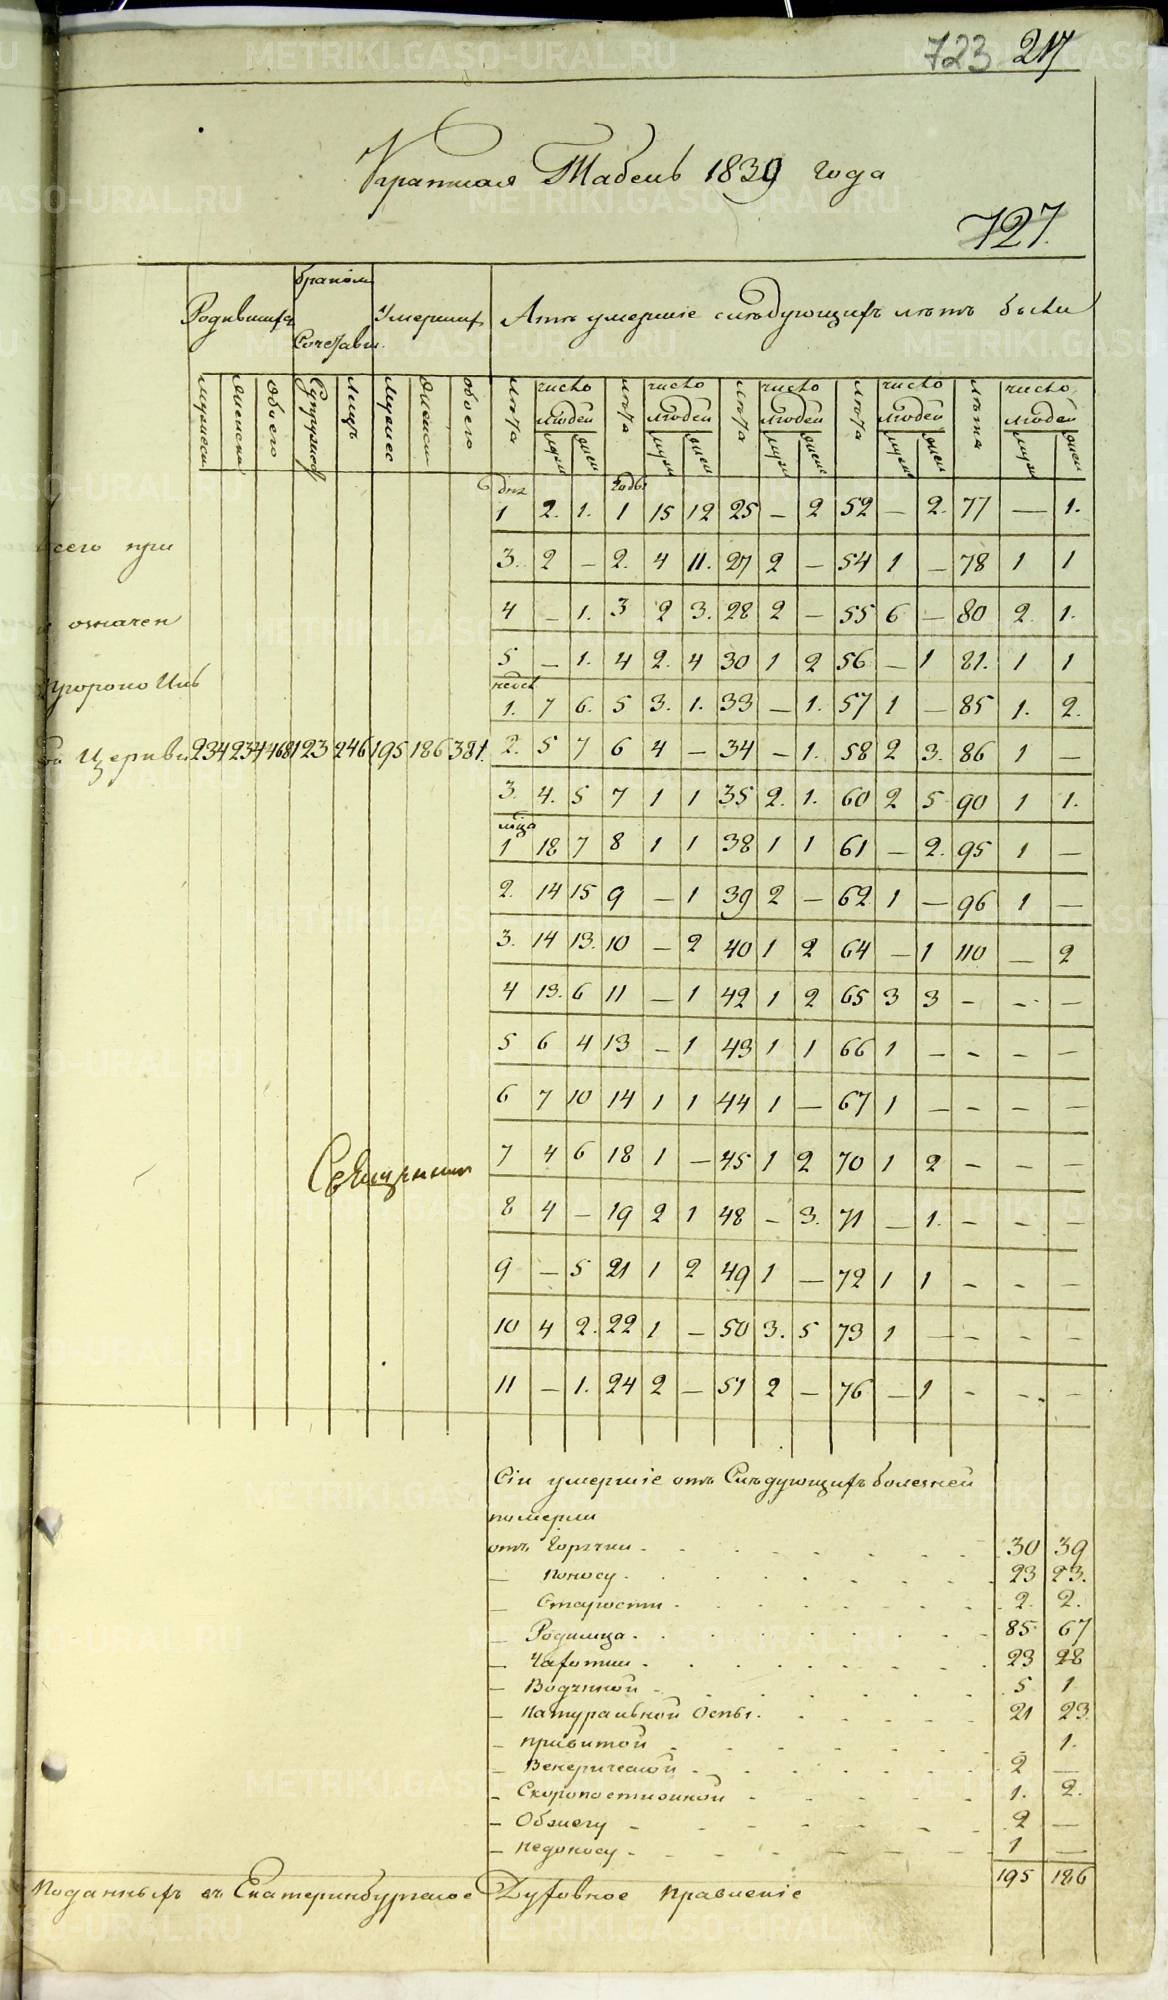 723 217
Краткая Табель 1839 года
727.
Родившихся
браком Сочетавш.
Умерших
А тѣ умершіе слѣдующихъ лѣтъ были
мужеска женска обоего Супружес лицъ мужес женск обоего
лѣта число людей лѣта число людей лѣта число людей лѣта число людей лѣта число людей
муж жен муж жен муж жен муж жен муж жен
дня годы
1 2. 1. 1 15 12 25 — 2 52 — 2. 77 — 1.
сего при
3. 2 — 2. 4 11. 27 2 — 54 1 — 78 1 1
означен
4 — 1. 3 2 3. 28 2 — 55 6 — 80 2. 1.
5 — 1. 4 2. 4 30 1 2 56 — 1 81. 1 1
недѣл
1. 7 6. 5 3. 1. 33 — 1. 57 1 — 85 1. 2.
Церкви 234 234 468 123 246 195 186 381.
2. 5 7 6 4 — 34 — 1. 58 2 3. 86 1 —
3. 4. 5 7 1 1 35 2. 1. 60 2 5 90 1 1.
мца
1 18 7 8 1 1 38 1 1 61 — 2. 95 1 —
2. 14 15 9 — 1 39 2 — 62 1 — 96 1 —
3. 14 13. 10 — 2 40 1 2 64 — 1 110 — 2
4 13. 6 11 — 1 42 1 2 65 3 3 — — —
5 6 4 13 — 1 43 1 1 66 1 — — — —
6 7 10 14 1 1 44 1 — 67 1 — — — —
7 4 6 18 1 — 45 1 2 70 1 2 — — —
Священникъ
8 4 — 19 2 1 48 — 3. 71 — 1. — — —
9 — 5 21 1 2 49 1 — 72 1 1 — — —
10 4 2. 22 1 — 50 3. 5 73 1 — — — —
11 — 1. 24 2 — 51 2 — 76 — 1 — — —
Сіи умершіе отъ Слѣдующихъ болезней
померли
отъ Горячки 30 39
— поносу 23 23.
— Старости 2. 2.
— Родимца 85 67
— Чахотки 23 28
— Водяной 5 1
— Натуральной Оспы 21 23
— привитой — 1.
— Венерической 2 —
— Скоропостижной 1. 2.
— Обжегу 2 —
— недоносу 1 —
195 186
Поданныхъ въ Екатеринбургское Духовное правленіе